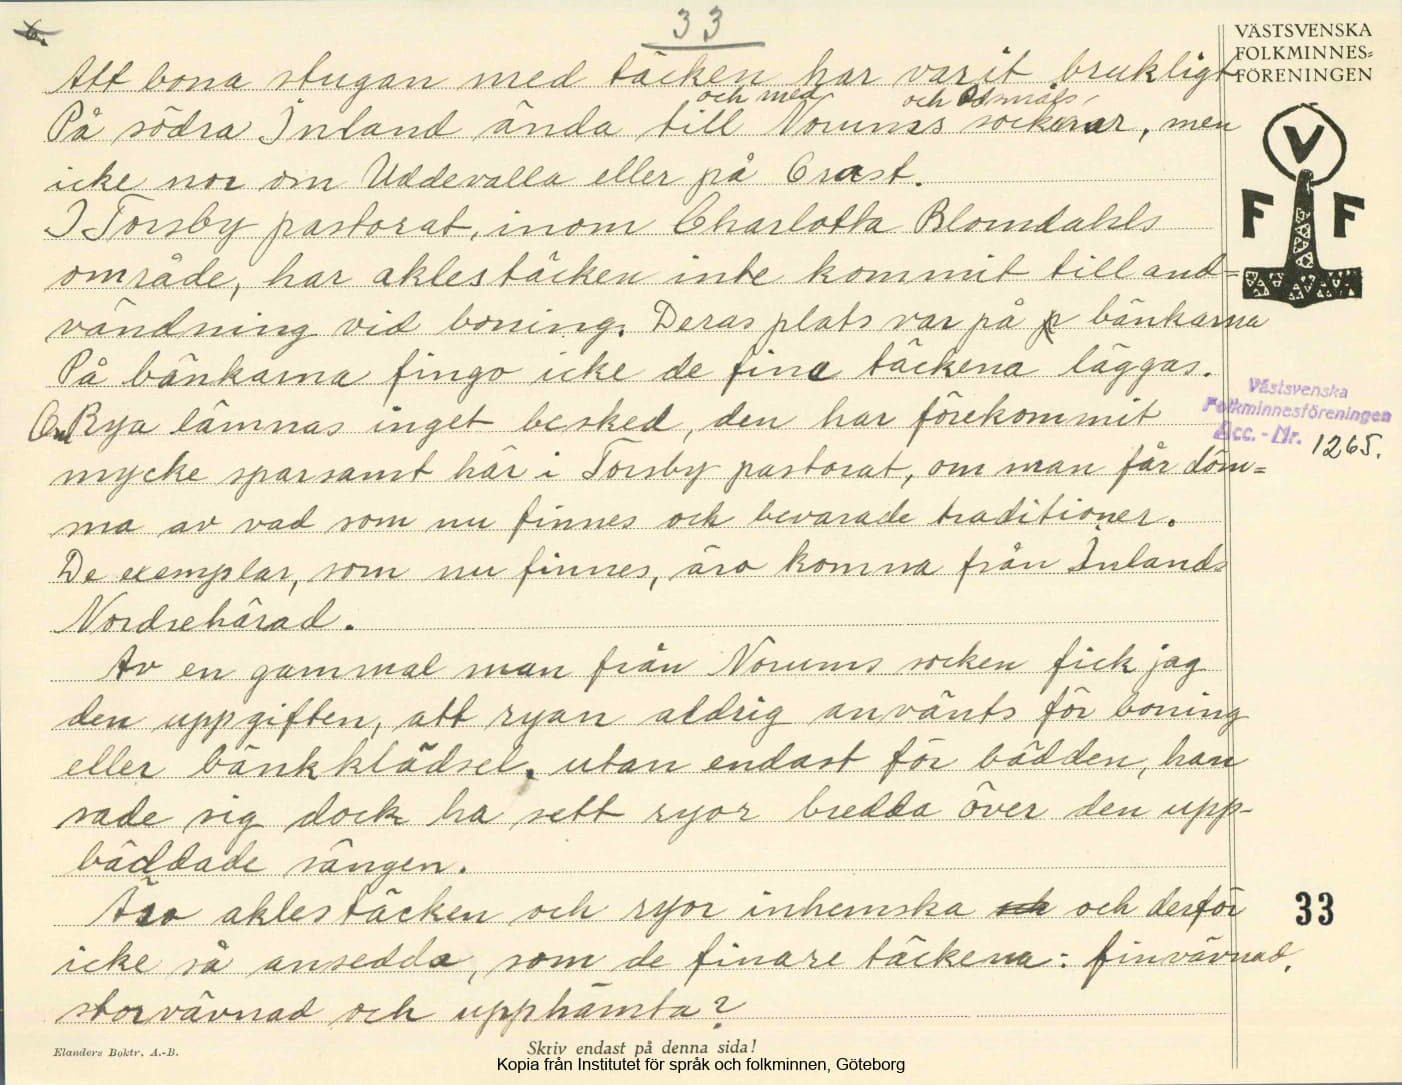 33
VÄSTSVENSKA
FOLKMINNES=
FÖRENINGEN
V
F F
Att bona stugan med täcken har varit brukligt
och med och Ödsmåls-
På södra Inland ända till Norums socknar, men
icke nor om Uddevalla eller på Orast.
I Torsby pastorat, inom Charlotta Blomdahls
område, har aklestäcken inte kommit till and=
vändning vid boning. Deras plats var på bänkarna
På bänkarna fingo icke de fina täckena läggas.
Om Rya lämnas inget besked, den har förekommit
mycke sparsamt här i Torsby pastorat, om man får döm=
ma av vad som nu finnes och bevarade traditioner.
De exemplar, som nu finnes, äro komna från Inlands
Nordrehärad.
Av en gammal man från Norums socken fick jag
den uppgiften, att ryan aldrig använts för boning
eller bänkklädsel, utan endast för bädden, han
sade sig dock ha sett ryor bredda över den upp-
bäddade sängen.
Äro aklestäcken och ryor inhemska och derför
icke så ansedda, som de finare täckena: finvävnad,
storvävnad och upphämta?
Västsvenska
Folkminnesföreningen
Acc.-Nr. 1265.
33
Elanders Boktr. A.-B.
Skriv endast på denna sida!
Kopia från Institutet för språk och folkminnen, Göteborg